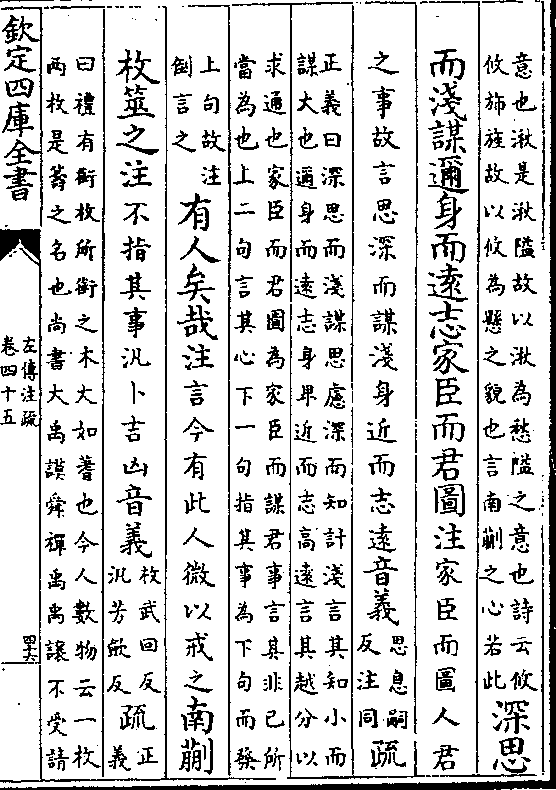 意也湫是湫隘故以湫為愁隘之意也詩云攸
攸旆旌故以攸為懸之貌也言南蒯之心若此
深思
而淺謀邇身而遠志家臣而君圖注家臣而圖人君
之事故言思深而謀淺身近而志遠音義
思息嗣
反注同
疏
正義曰深思而淺謀思慮深而知計淺言其知小而
謀大也邇身而遠志身卑近而志高遠言其越分以
求通也家臣而君圖為家臣而謀君事言其非已所
當為也上二句言其心下一句指其事為下句而發
上句故注
倒言之
有人矣哉注言今有此人微以戒之南蒯
枚筮之注不指其事汎卜吉凶音義
枚武回反
汎芳歛反
疏
正
義
曰禮有銜枚所銜之木大如蓍也今人數物云一枚
兩枚是籌之名也尚書大禹謨舜禪禹禹讓不受請
欽定四庫全書
左傳注疏
卷四十五
四十六